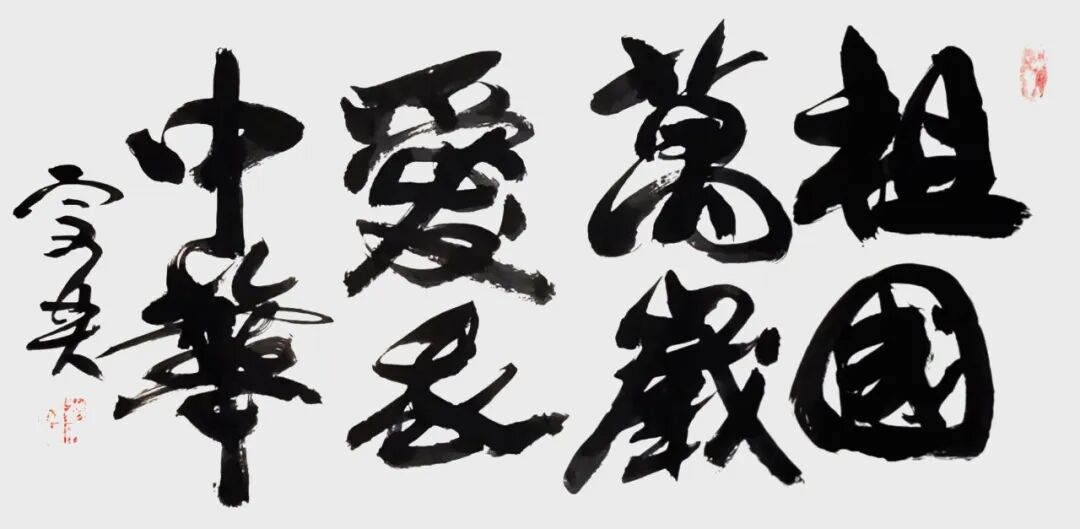 祖國
萬歲
愛我
中華